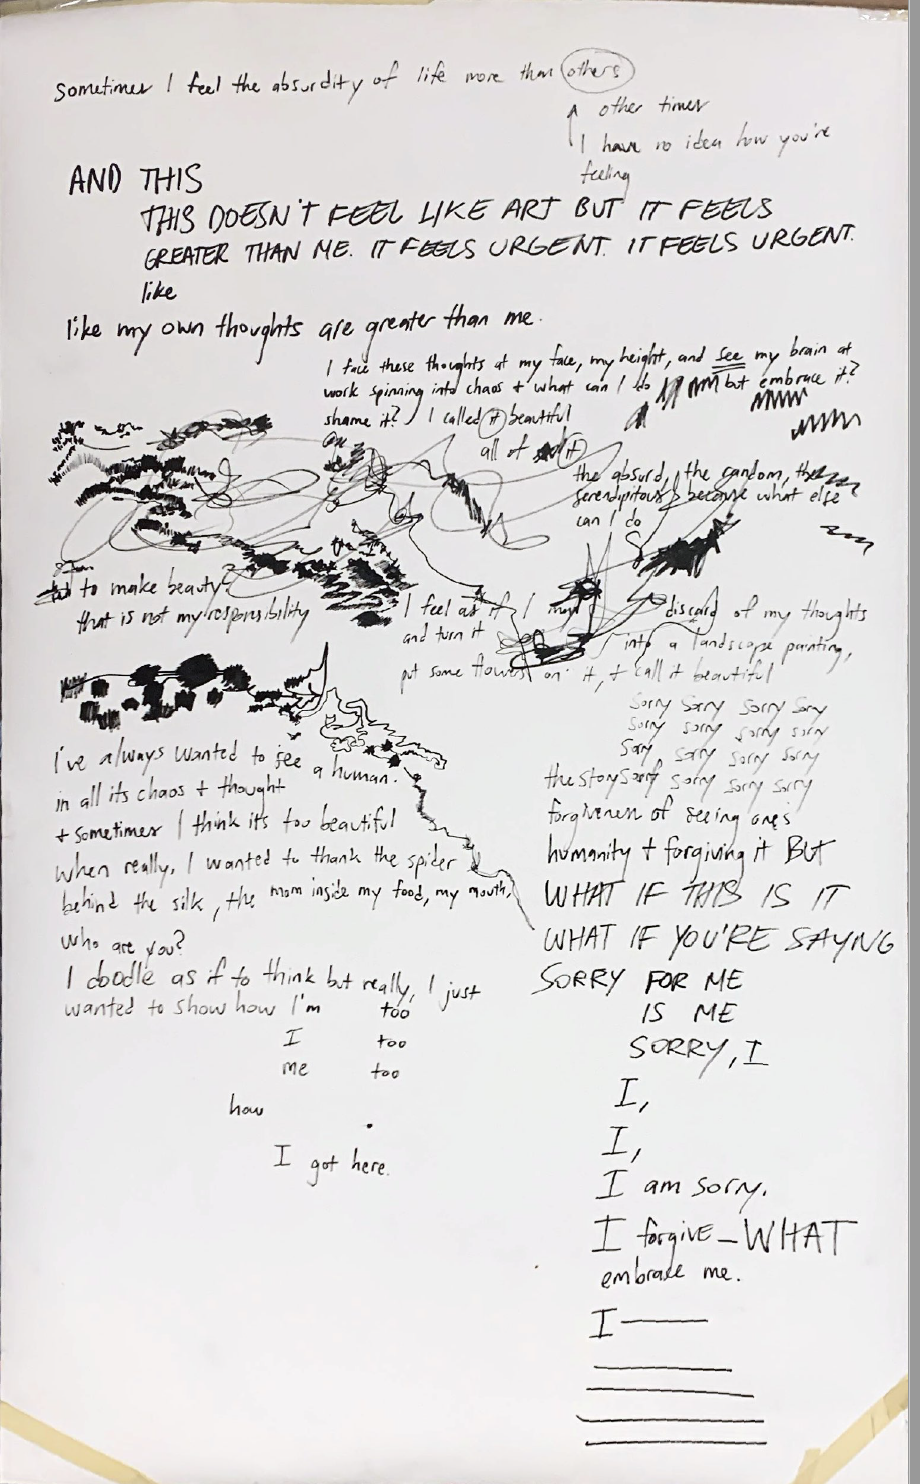 Sometimes I feel the absurdity of life more than others
other times
I have no idea how you're
feeling
AND THIS
THIS DOESN'T FEEL LIKE ART BUT IT FEELS
GREATER THAN ME. IT FEELS URGENT. IT FEELS URGENT.
like
like my own thoughts are greater than me.
I face these thoughts at my face, my height, and see my brain at
work spinning into chaos + what can I do but embrace it?
shame it? I called it beautiful
all of it
the absurd, the random, the
serendipitous, because what else
can I do
to make beauty?
that is not my responsibility
I feel as if I must discard of my thoughts
and turn it into a landscape painting,
put some flowers on it, + call it beautiful
Sorry Sorry Sorry Sorry
Sorry Sorry Sorry Sorry
Sorry Sorry Sorry Sorry
the story Sorry Sorry Sorry Sorry
forgiveness of seeing one's
humanity + forgiving it BUT
WHAT IF THIS IS IT
WHAT IF YOU'RE SAYING
SORRY FOR ME
IS ME
SORRY, I
I,
I,
I am sorry.
I forgive – WHAT
embrace me.
I
I've always wanted to see a human.
in all its chaos + thought
+ sometimes I think it's too beautiful
when really, I wanted to thank the spider
behind the silk, the mom inside my food, my mouth,
who are you?
I doodle as if to think but really, I just
wanted to show how I'm too
I too
me too
how
I got here.